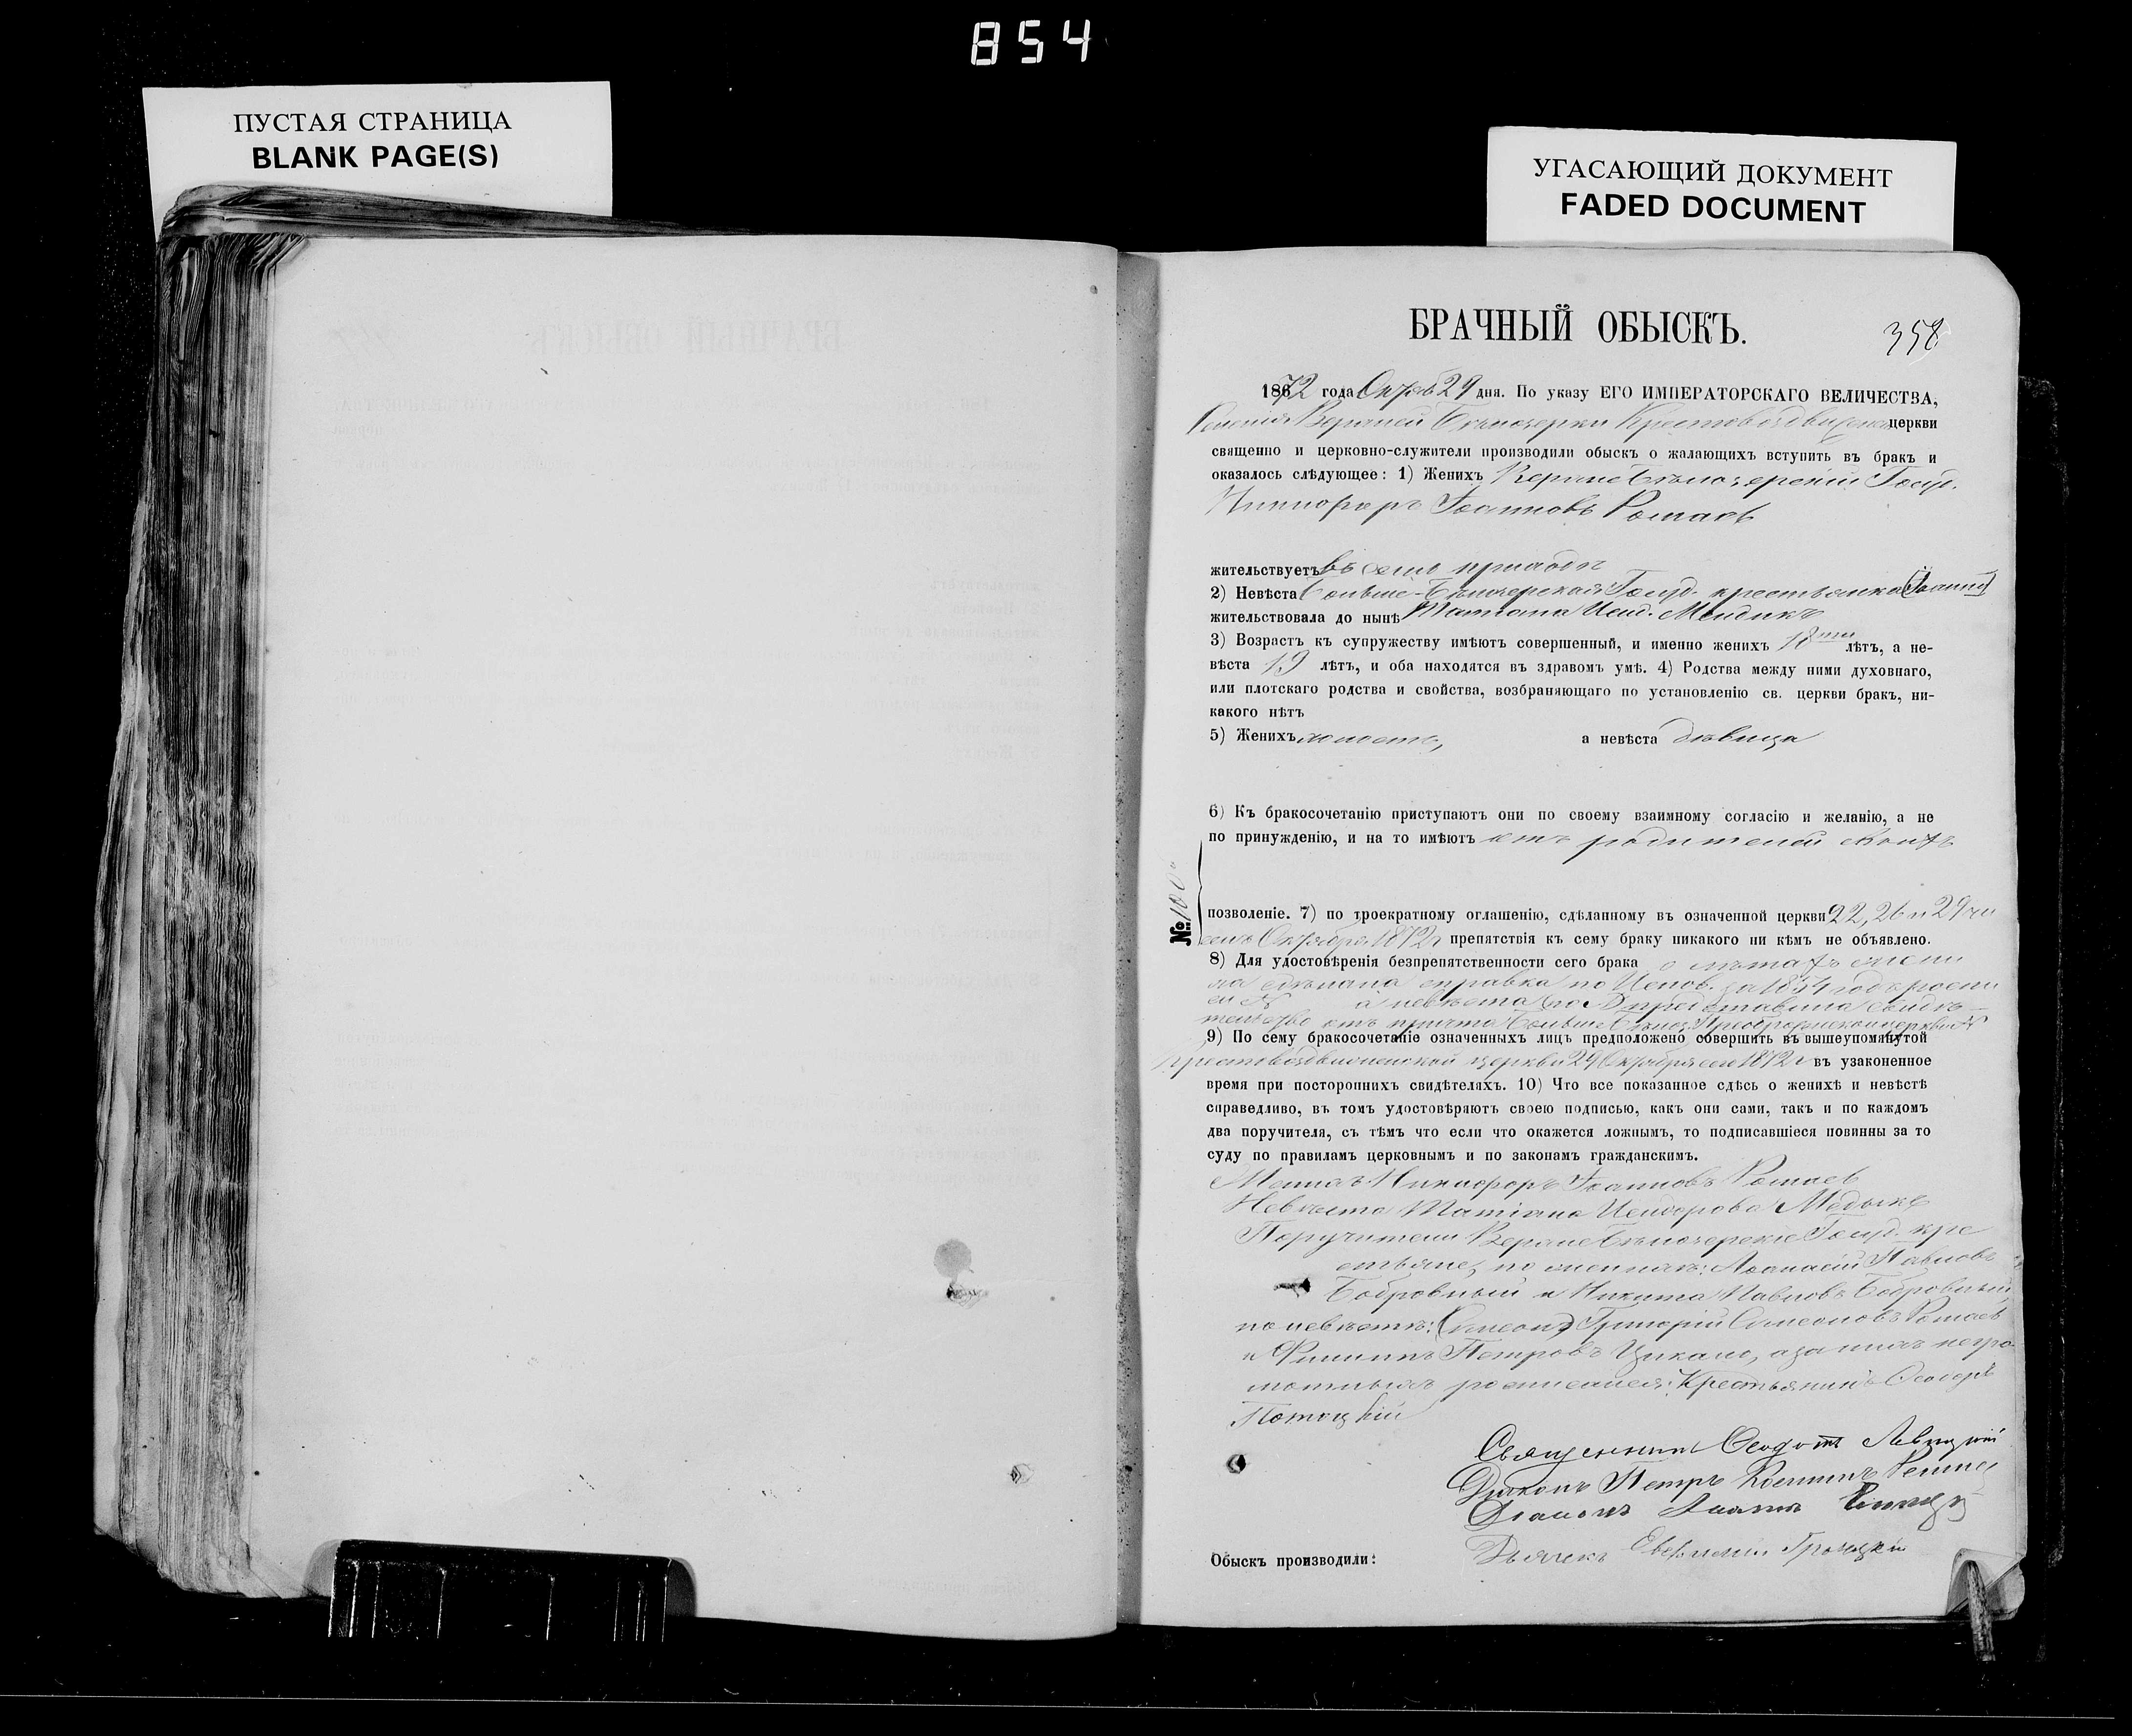 854
ПУСТАЯ СТРАНИЦА
BLANK PAGE(S)
УГАСАЮЩИЙ ДОКУМЕНТ
FADED DOCUMENT
БРАЧНЫЙ ОБЫСКЪ.
358
1872 года Октяб 29 дня. По указу ЕГО ИМПЕРАТОРСКАГО ВЕЛИЧЕСТВА,
Селенія Верхней Бѣлозерки Крестовоздвиженс церкви
священно и церковно-служители производили обыскъ о жалающихъ вступить въ бракъ и
оказалось слѣдующее: 1) Женихъ Верхне Бѣлозерскій Госуд.
Никифоръ Іоанновъ Ромаев
жительствуетъ въ семъ приходѣ
2) Невѣста Больше-Бѣлозерская Госуд. крестьянка
жительствовала до нынѣ Татіана Исид.
3) Возрастъ къ супружеству имѣютъ совершенный, и именно женихъ 18ти лѣтъ, а не-
вѣста 19 лѣтъ, и оба находятся въ здравомъ умѣ. 4) Родства между ними духовнаго,
или плотскаго родства и свойства, возбраняющаго по установленію св. церкви бракъ, ни-
какого нѣтъ
5) Женихъ холостъ, а невѣста дѣвица
6) Къ бракосочетанію приступаютъ они по своему взаимному согласію и желанію, а не
по принужденію, и на то имѣютъ отъ родителей своихъ
№ 100
позволеніе. 7) по троекратному оглашенію, сдѣланному въ означенной церкви 22, 26 и 29 чи
селъ Октября 1872 г препятствія къ сему браку никакого ни кѣмъ не объявлено.
8) Для удостовѣренія безпрепятственности сего брака о лѣтахъ жени
ха сдѣлана справка по Испов. за 1854 годъ роспи
си № а невѣста представила свидѣ
тельство отъ причта Больше Бѣлоз. Преображенской церкви №
9) По сему бракосочетаніе означенныхъ лицъ предположено совершить въ вышеупомянутой
Крестовоздвиженской церкви 29 Октября сего 1872 г въ узаконенное
время при постороннихъ свидѣтеляхъ. 10) Что все показанное сдѣсь о женихѣ и невѣстѣ
справедливо, въ томъ удостовѣряютъ своею подписью, какъ они сами, такъ и по каждомъ
два поручителя, съ тѣмъ что если что окажется ложнымъ, то подписавшіеся повинны за то
суду по правиламъ церковнымъ и по законамъ гражданскимъ.
Женихъ Никифоръ Іоанновъ Ромаев
Невѣста Татіана Исидорова
Поручители Верхне Бѣлозерскіе Госуд. кре
стьяне, по женихѣ: Аѳанасій Павловъ
Бобровный и Никита Павловъ Бобровный,
по невѣстѣ: Григорій Симеоновъ Ромаев
и Филиппъ Петровъ Цикало, а за нихъ негра
мотныхъ росписался: Крестьянинъ Ѳеодоръ
Потоцкій
Священникъ Ѳеодотъ Левицкій
Діаконъ Петръ
Дьячекъ
Обыскъ производили: